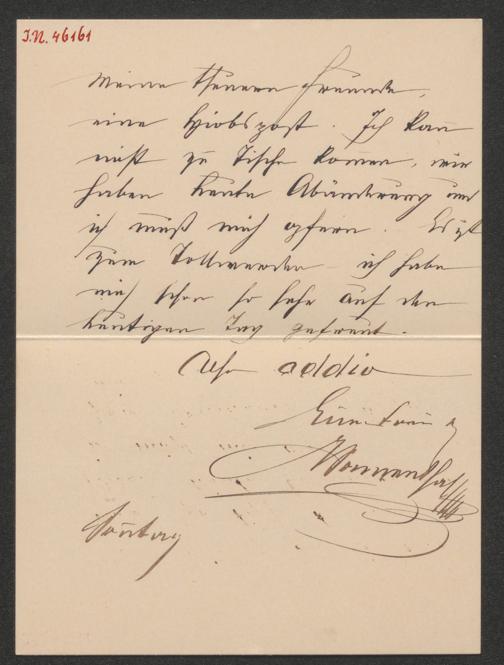 I.N. 46161
Meine theuren Freunde,
eine Hiobspost. Ich kan̄
nicht zu Tische kom̄en, wir
haben heute Abänderung und
ich muß mich opfern. Es ist
zum Tollwerden – ich habe
mich schon so sehr auf den
heutigen Tag gefreut.
Also addio
Euer treuer
Sonnenthal
Son̄tag